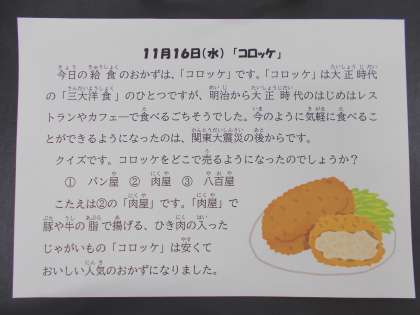 11月16日(水)「コロッケ」
今日の給食のおかずは、「コロッケ」です。「コロッケ」は大正時代
の「三大洋食」のひとつですが、明治から大正時代のはじめはレス
トランやカフェーで食べるごちそうでした。今のように気軽に食べるこ
とができるようになったのは、関東大震災の後からです。
クイズです。コロッケをどこで売るようになったのでしょうか?
① パン屋 ② 肉屋 ③ 八百屋
こたえは②の「肉屋」です。「肉屋」で
豚や牛の脂で揚げる、ひき肉の入った
じゃがいもの「コロッケ」は安くて
おいしい人気のおかずになりました。